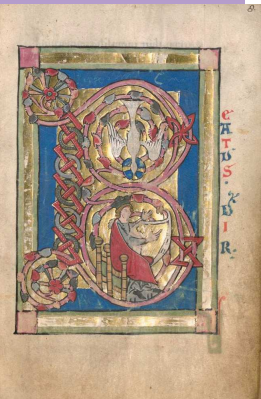 B
EATUS·VIR